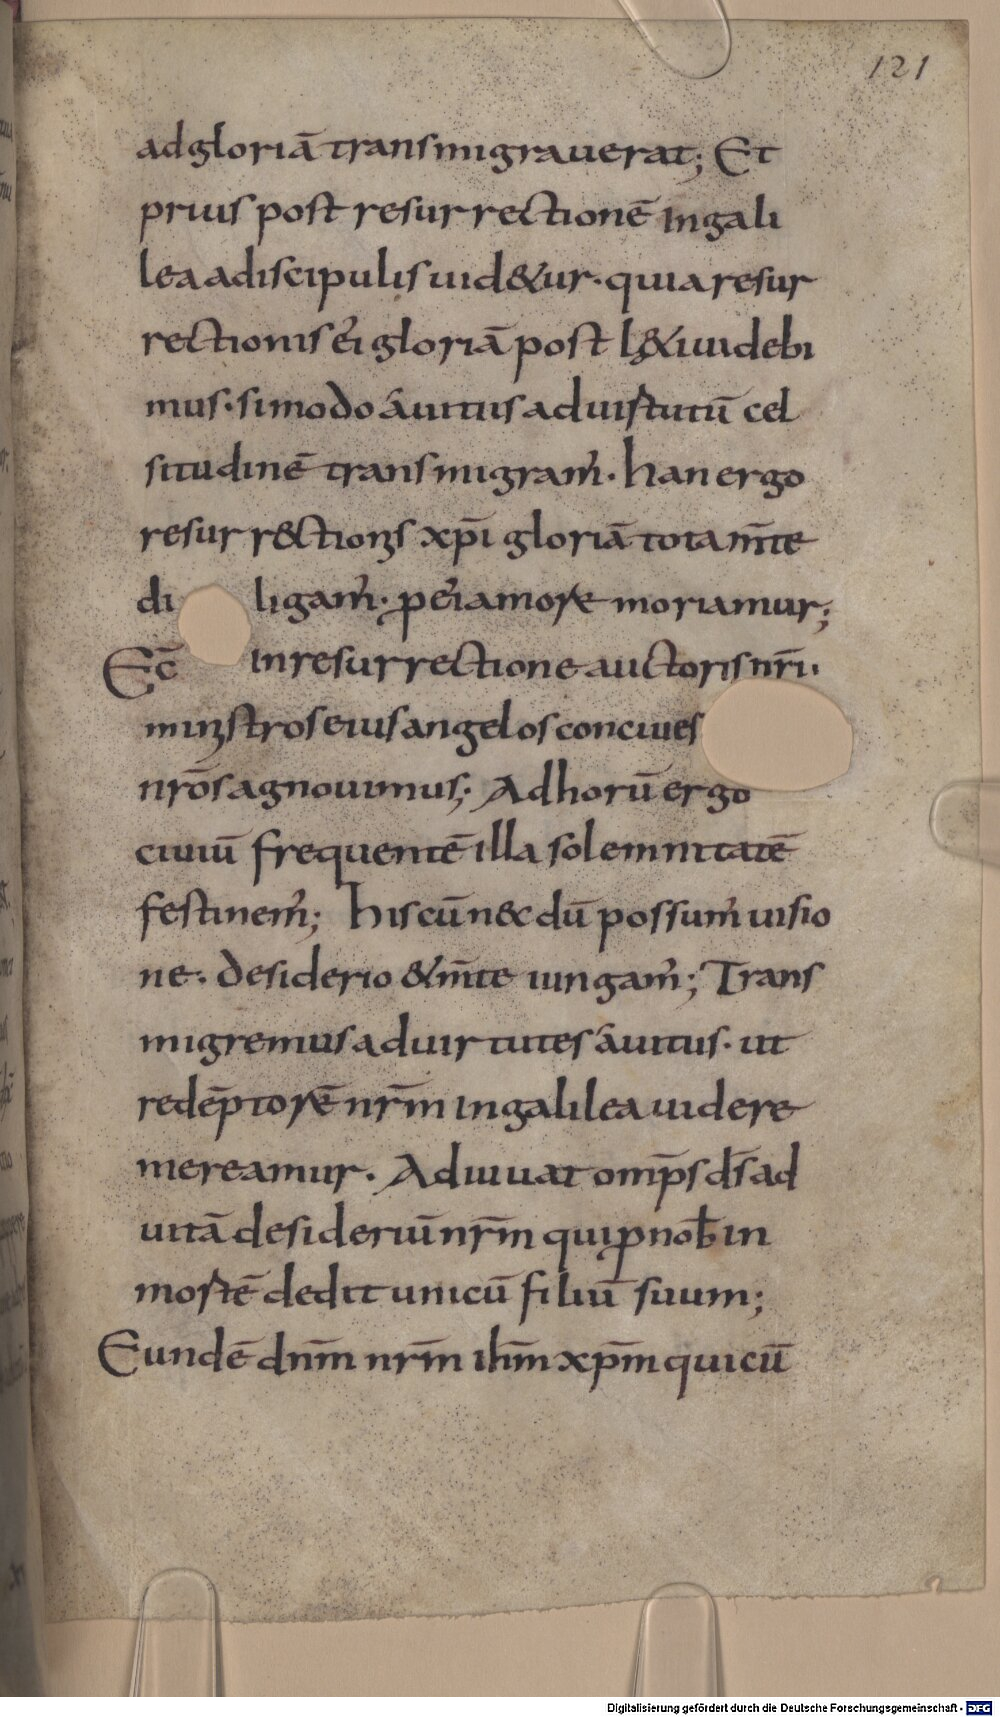 121
ad gloriā transmigrauerat; Et
prius post resurrectionē in gali
lea a discipulis uid&ur· quia resur
rectionis ei̾ gloriā post l&i uidebi
mus· si modo a uitiis ad uirtutū cel
situdinē transmigram̾· han ergo
resurr&ctionis xp̄i gloriā tota m̄te
di ligam̾· p̱ ei̾ amore moriamur;
Ec̄ in resurrectione auctoris nr̄i·
ministros eius angelos conciues
nrōs agnouimus; Ad horū ergo
ciuiū frequentē illa solemnitatē
festinem̾; his cū n&c dū possum̾ uisio
ne· desiderio & m̄te iungam̾; Trans
migremus ad uirtutes a uitiis· ut
redēptorē nr̄m in galilea uidere
mereamur· Adiuuat om̄ps d̄s ad
uitā desideriū nr̄m qui ꝓ nob̄ in
mortē dedit unicū filiū suum;
Eundē dn̄m nr̄m ih̄m xp̄m qui cū
Digitalisierung gefördert durch die Deutsche Forschungsgemeinschaft - DFG